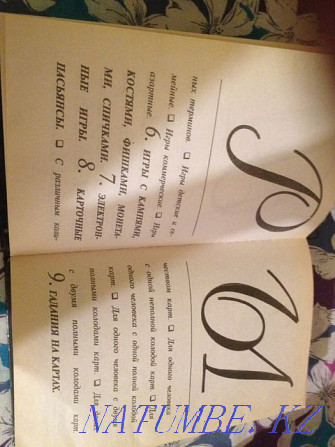 Р
ных терминов. ❑ Игры детские и се-
мейные. ❑ Игры коммерческие ❑ Игры
азартные. 6. ИГРЫ С КАМНЯМИ,
КОСТЯМИ, ФИШКАМИ, МОНЕТА-
МИ, СПИЧКАМИ. 7. ЭЛЕКТРОН-
НЫЕ ИГРЫ. 8. КАРТОЧНЫЕ
ПАСЬЯНСЫ. ❑ С различным коли-
Ы
чеством карт. ❑ Для одного человека
с одной неполной колодой карт ❑ Для
одного человека с одной полной колодой
карт. ❑ Для одного человека с двумя
полными колодами карт. ❑ Для
с двумя полными колодами карт.
9. ГАДАНИЯ НА КАРТАХ.
NATUMBE.KZ